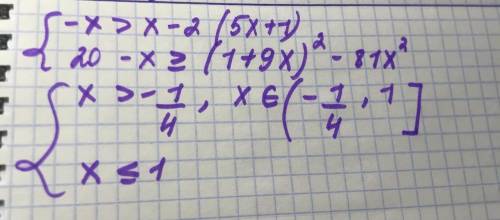 { -x > x - 2 (5x+1)
20 - x ≥ (1+9x)² - 81x²
{ x > -1/4, x ∈ (-1/4, 1]
x ≤ 1